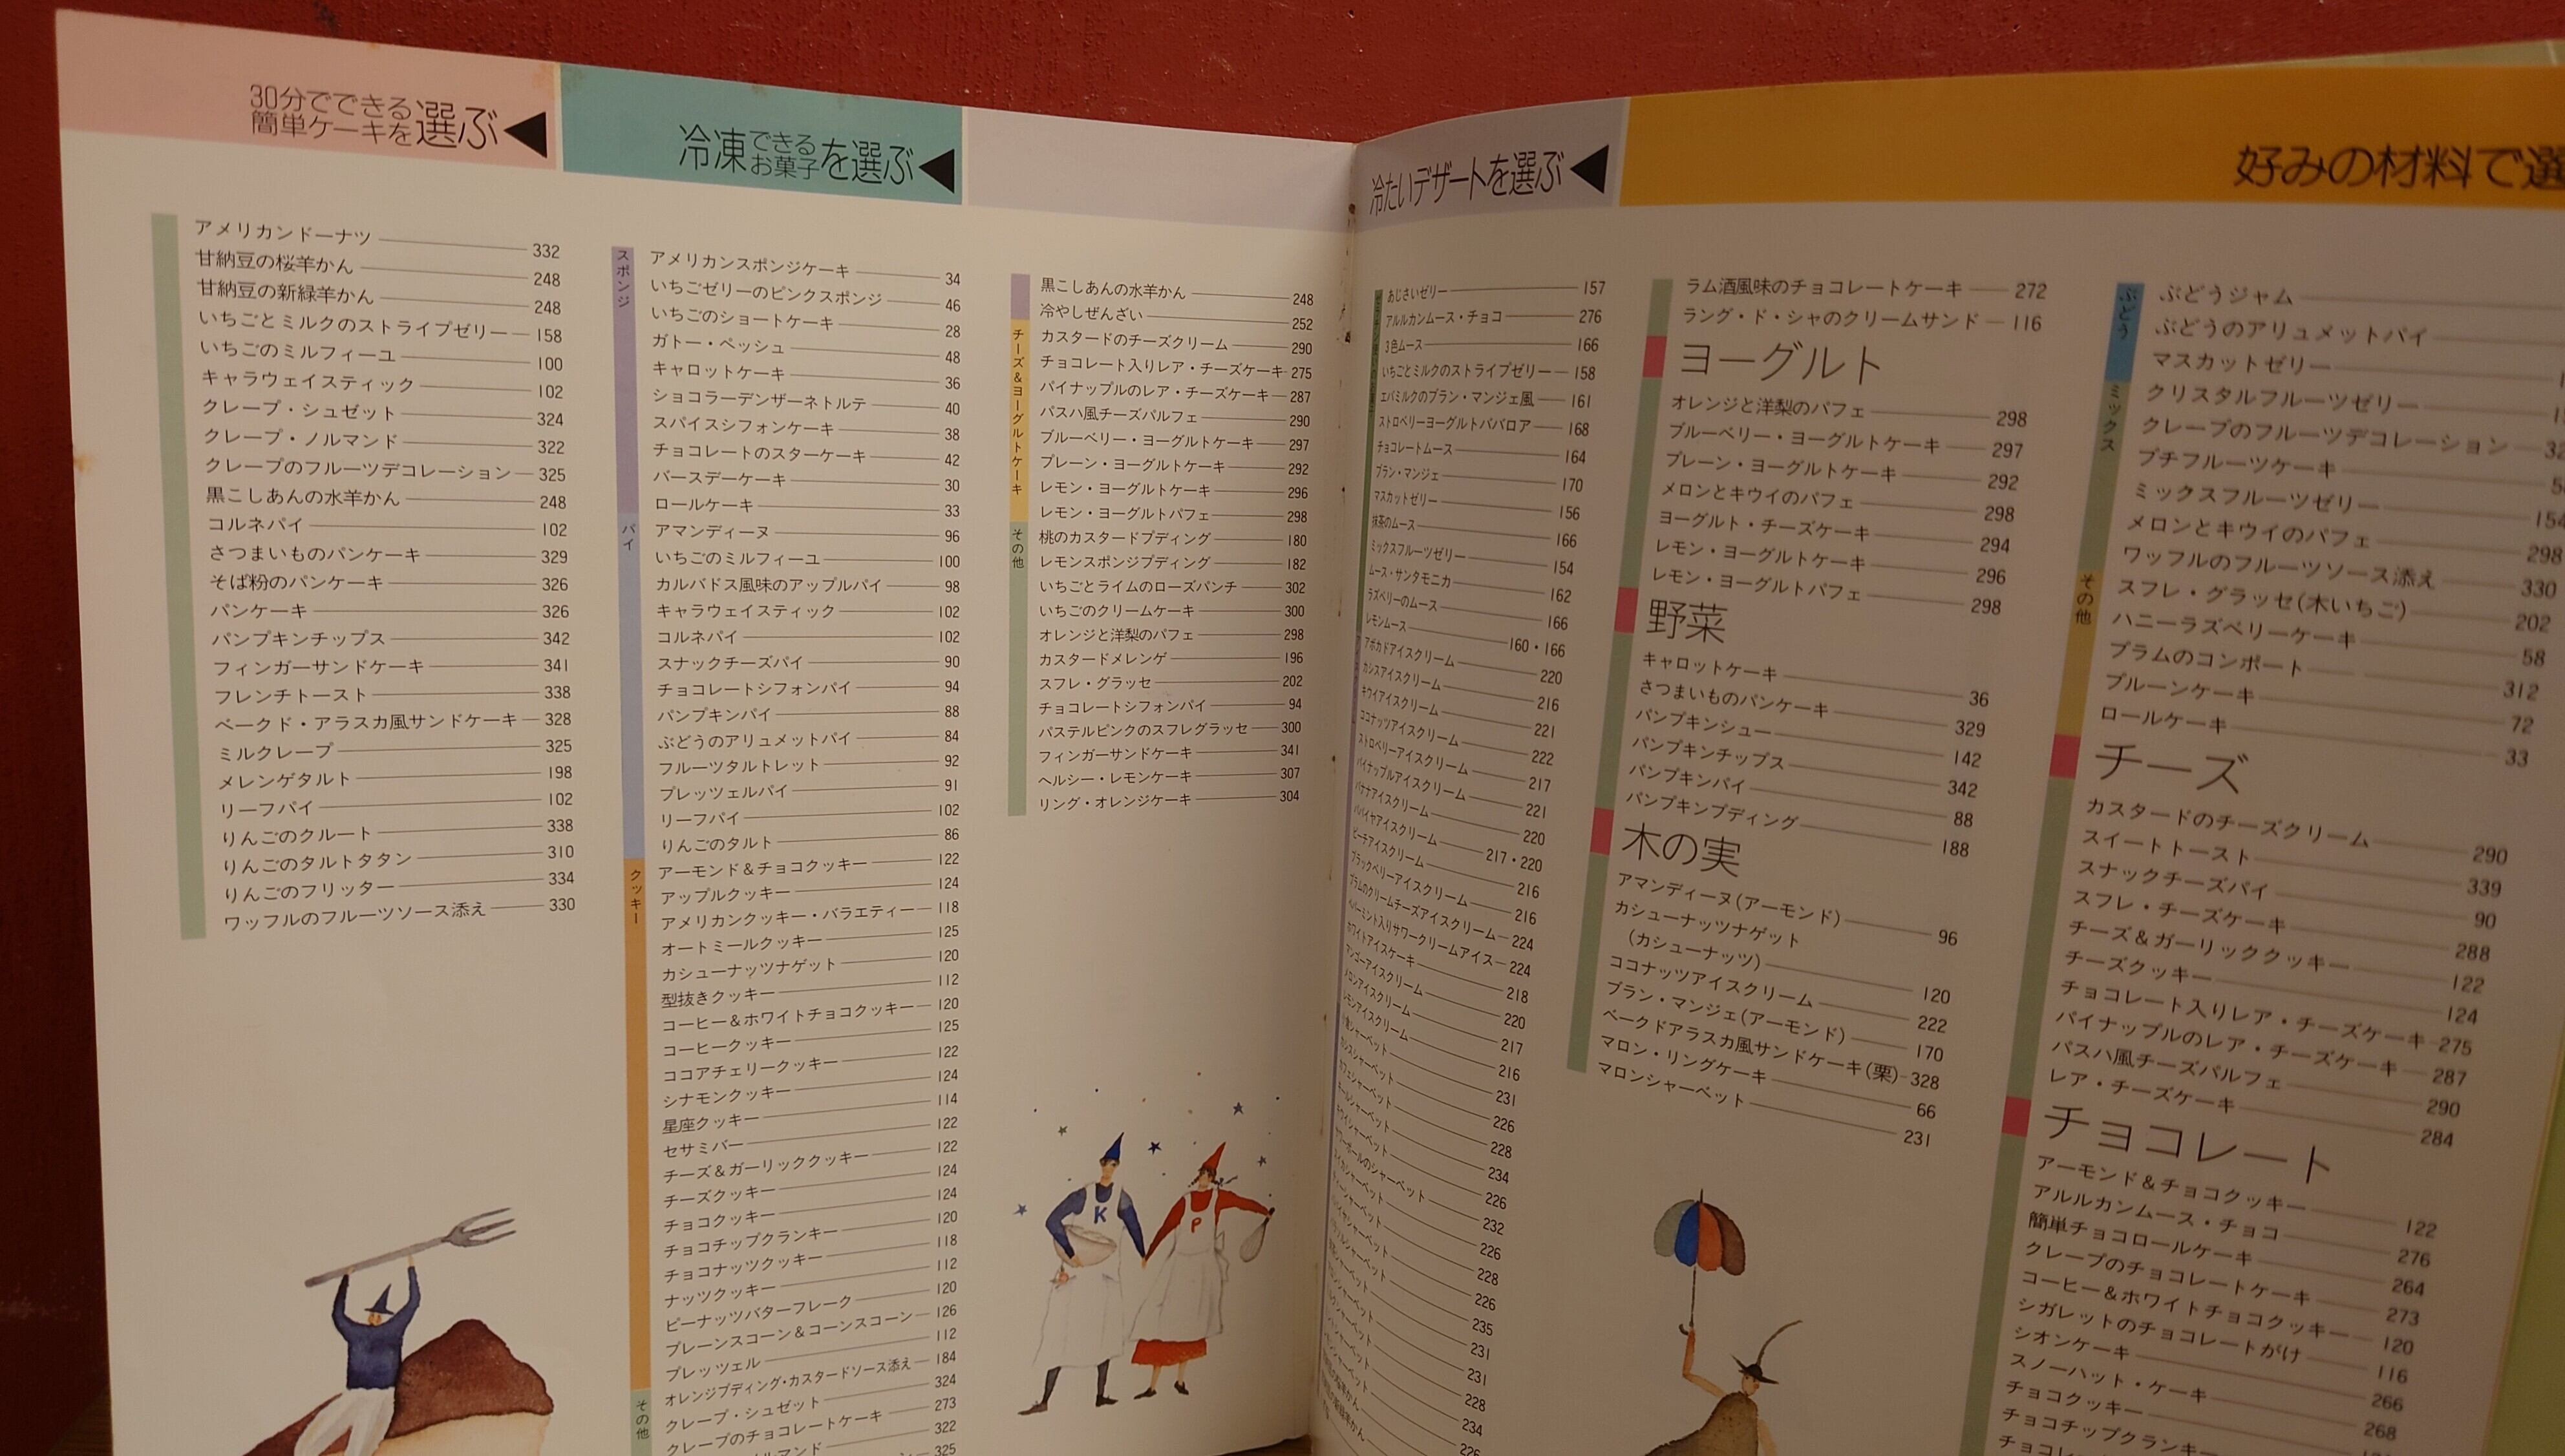 30分でできる
簡単ケーキを選ぶ◀
アメリカンドーナツ 332
甘納豆の桜羊かん 248
甘納豆の新緑羊かん 248
いちごとミルクのストライプゼリー 158
いちごのミルフィーユ 100
キャラウェイスティック 102
クレープ・シュゼット 324
クレープ・ノルマンド 322
クレープのフルーツデコレーション 325
黒こしあんの水羊かん 248
コルネパイ 102
さつまいものパンケーキ 329
そば粉のパンケーキ 326
パンケーキ 326
パンプキンチップス 342
フィンガーサンドケーキ 341
フレンチトースト 338
ベークド・アラスカ風サンドケーキ 328
ミルクレープ 325
メレンゲタルト 198
リーフパイ 102
りんごのクルート 338
りんごのタルトタタン 310
りんごのフリッター 334
ワッフルのフルーツソース添え 330
冷凍できるお菓子を選ぶ◀
スポンジ
アメリカンスポンジケーキ 34
いちごゼリーのピンクスポンジ 46
いちごのショートケーキ 28
ガトー・ペッシュ 48
キャロットケーキ 36
ショコラーデンザーネトルテ 40
スパイスシフォンケーキ 38
チョコレートのスターケーキ 42
バースデーケーキ 30
ロールケーキ 33
パイ
アマンディーヌ 96
いちごのミルフィーユ 100
カルバドス風味のアップルパイ 98
キャラウェイスティック 102
コルネパイ 102
スナックチーズパイ 90
チョコレートシフォンパイ 94
パンプキンパイ 88
ぶどうのアリュメットパイ 84
フルーツタルトレット 92
プレッツェルパイ 91
リーフパイ 102
りんごのタルト 86
クッキー
アーモンド&チョコクッキー 122
アップルクッキー 124
アメリカンクッキー・バラエティー 118
オートミールクッキー 125
カシューナッツナゲット 120
型抜きクッキー 112
コーヒー&ホワイトチョコクッキー 120
コーヒークッキー 125
ココアチェリークッキー 122
シナモンクッキー 124
星座クッキー 114
セサミバー 122
チーズ&ガーリッククッキー 122
チーズクッキー 124
チョコクッキー 124
チョコチップクランキー 120
チョコナッツクッキー 118
ナッツクッキー 112
ピーナッツバターフレーク 120
プレーンスコーン&コーンスコーン 126
プレッツェル 112
その他
オレンジプディング・カスタードソース添え 184
クレープ・シュゼット 324
クレープのチョコレートケーキ 273
ルマンド 322
325
黒こしあんの水羊かん 248
冷やしぜんざい 252
チーズ&ヨーグルトケーキ
カスタードのチーズクリーム 290
チョコレート入りレア・チーズケーキ 275
パイナップルのレア・チーズケーキ 287
パスハ風チーズパルフェ 290
ブルーベリー・ヨーグルトケーキ 297
プレーン・ヨーグルトケーキ 292
レモン・ヨーグルトケーキ 296
レモン・ヨーグルトパフェ 298
その他
桃のカスタードプディング 180
レモンスポンジプディング 182
いちごとライムのローズパンチ 302
いちごのクリームケーキ 300
オレンジと洋梨のパフェ 298
カスタードメレンゲ 196
スフレ・グラッセ 202
チョコレートシフォンパイ 94
パステルピンクのスフレグラッセ 300
フィンガーサンドケーキ 341
ヘルシー・レモンケーキ 307
リング・オレンジケーキ 304
K
P
冷たいデザートを選ぶ◀
あじさいゼリー 157
アルルカンムース・チョコ 276
3色ムース 166
いちごとミルクのストライプゼリー 158
エバミルクのブラン・マンジェ風 161
ストロベリーヨーグルトババロア 168
チョコレートムース 164
ブラン・マンジェ 170
マスカットゼリー 156
抹茶のムース 166
ミックスフルーツゼリー 154
ムース・サンタモニカ 162
ラズベリーのムース 166
レモンムース 160・166
アボカドアイスクリーム 220
カシスアイスクリーム 216
キウイアイスクリーム 221
ココナッツアイスクリーム 222
ストロベリーアイスクリーム 217
パイナップルアイスクリーム 221
バナナアイスクリーム 220
パパイヤアイスクリーム 217・220
ピーチアイスクリーム 216
ブラックベリーアイスクリーム 216
プラムのクリームチーズアイスクリーム 224
ペパーミント入りサワークリームアイス 224
ホワイトアイスケーキ 218
マンゴーアイスクリーム 220
メロンアイスクリーム 217
レモンアイスクリーム 216
シャーベット 231
カシスシャーベット 226
カフェシャーベット 228
シャーベット 234
キウイシャーベット 226
のシャーベット 232
スイカシャーベット 226
シャーベット 228
シャーベット 226
シャーベット 235
シャーベット 231
シャーベット 231
シャーベット 228
シャーベット 234
226
好みの材料で選
ラム酒風味のチョコレートケーキ 272
ラング・ド・シャのクリームサンド 116
ヨーグルト
オレンジと洋梨のパフェ 298
ブルーベリー・ヨーグルトケーキ 297
プレーン・ヨーグルトケーキ 292
メロンとキウイのパフェ 298
ヨーグルト・チーズケーキ 294
レモン・ヨーグルトケーキ 296
レモン・ヨーグルトパフェ 298
野菜
キャロットケーキ 36
さつまいものパンケーキ 329
パンプキンシュー 142
パンプキンチップス 342
パンプキンパイ 88
パンプキンプディング 188
木の実
アマンディーヌ(アーモンド) 96
カシューナッツナゲット
(カシューナッツ) 120
ココナッツアイスクリーム 222
ブラン・マンジェ(アーモンド) 170
ベークドアラスカ風サンドケーキ(栗) 328
マロン・リングケーキ 66
マロンシャーベット 231
ぶどう
ぶどうジャム
ぶどうのアリュメットパイ
マスカットゼリー
ミックス
クリスタルフルーツゼリー
クレープのフルーツデコレーション
プチフルーツケーキ
ミックスフルーツゼリー 154
メロンとキウイのパフェ 298
ワッフルのフルーツソース添え 330
その他
スフレ・グラッセ(木いちご) 202
ハニーラズベリーケーキ 58
プラムのコンポート 312
プルーンケーキ 72
ロールケーキ 33
チーズ
カスタードのチーズクリーム 290
スイートトースト 339
スナックチーズパイ 90
スフレ・チーズケーキ 288
チーズ&ガーリッククッキー 122
チーズクッキー 124
チョコレート入りレア・チーズケーキ 275
パイナップルのレア・チーズケーキ 287
パスハ風チーズパルフェ 290
レア・チーズケーキ 284
チョコレート
アーモンド&チョコクッキー 122
アルルカンムース・チョコ 276
簡単チョコロールケーキ 264
クレープのチョコレートケーキ 273
コーヒー&ホワイトチョコクッキー 120
シガレットのチョコレートがけ 116
シオンケーキ 266
スノーハット・ケーキ 268
チョコクッキー
チョコチップクランキー
チョコレ